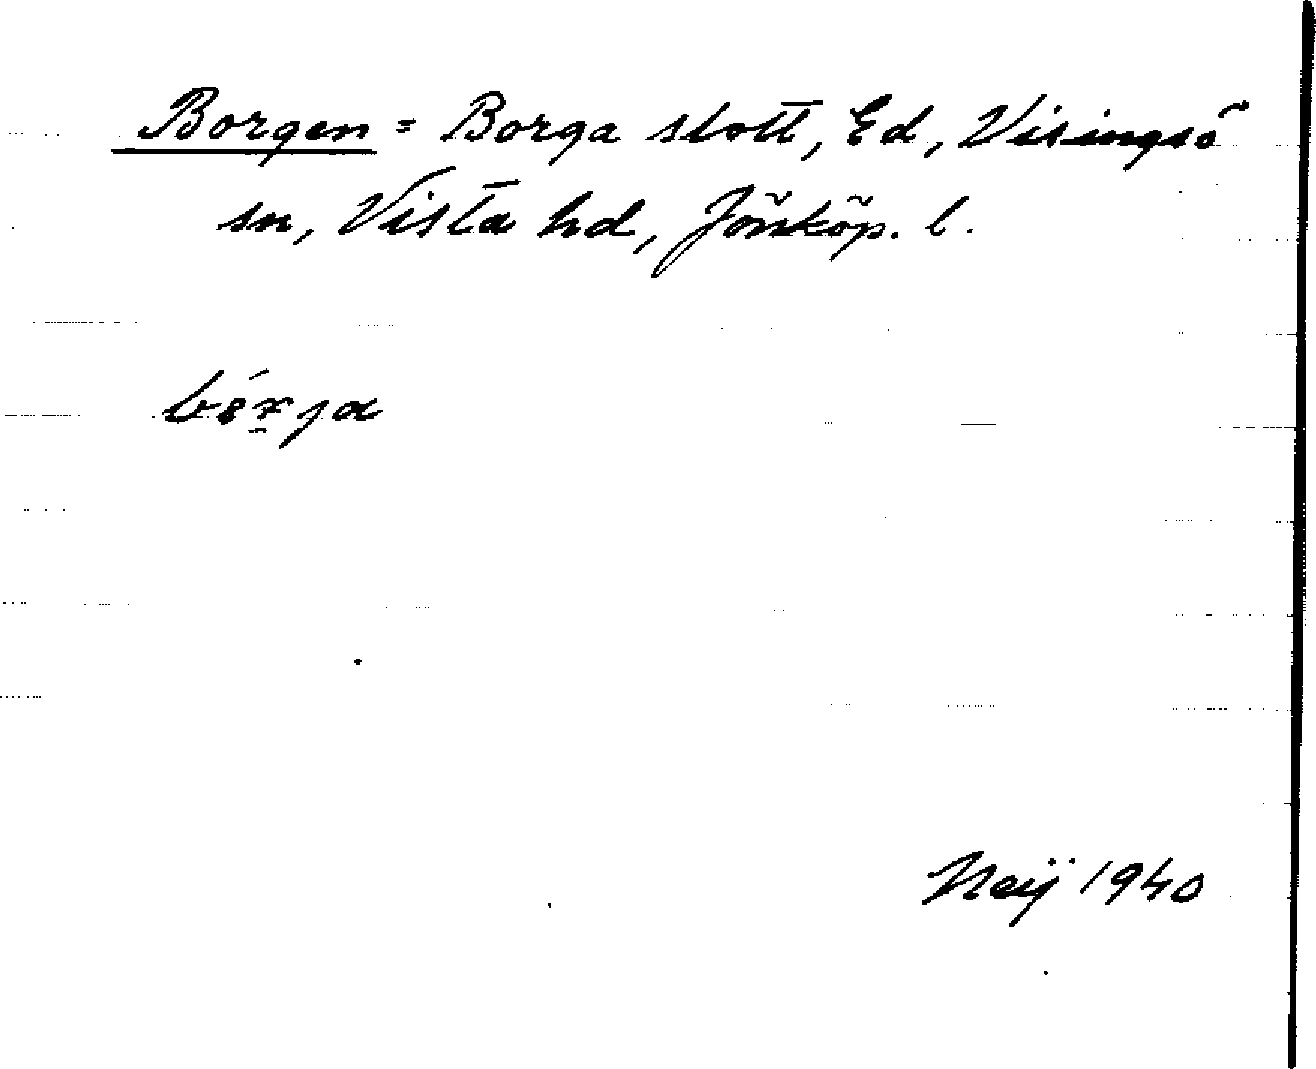 Borgen = Borga slott, Ed, Visingsö
sn, Vista hd, Jönköp. l.
Neij 1940